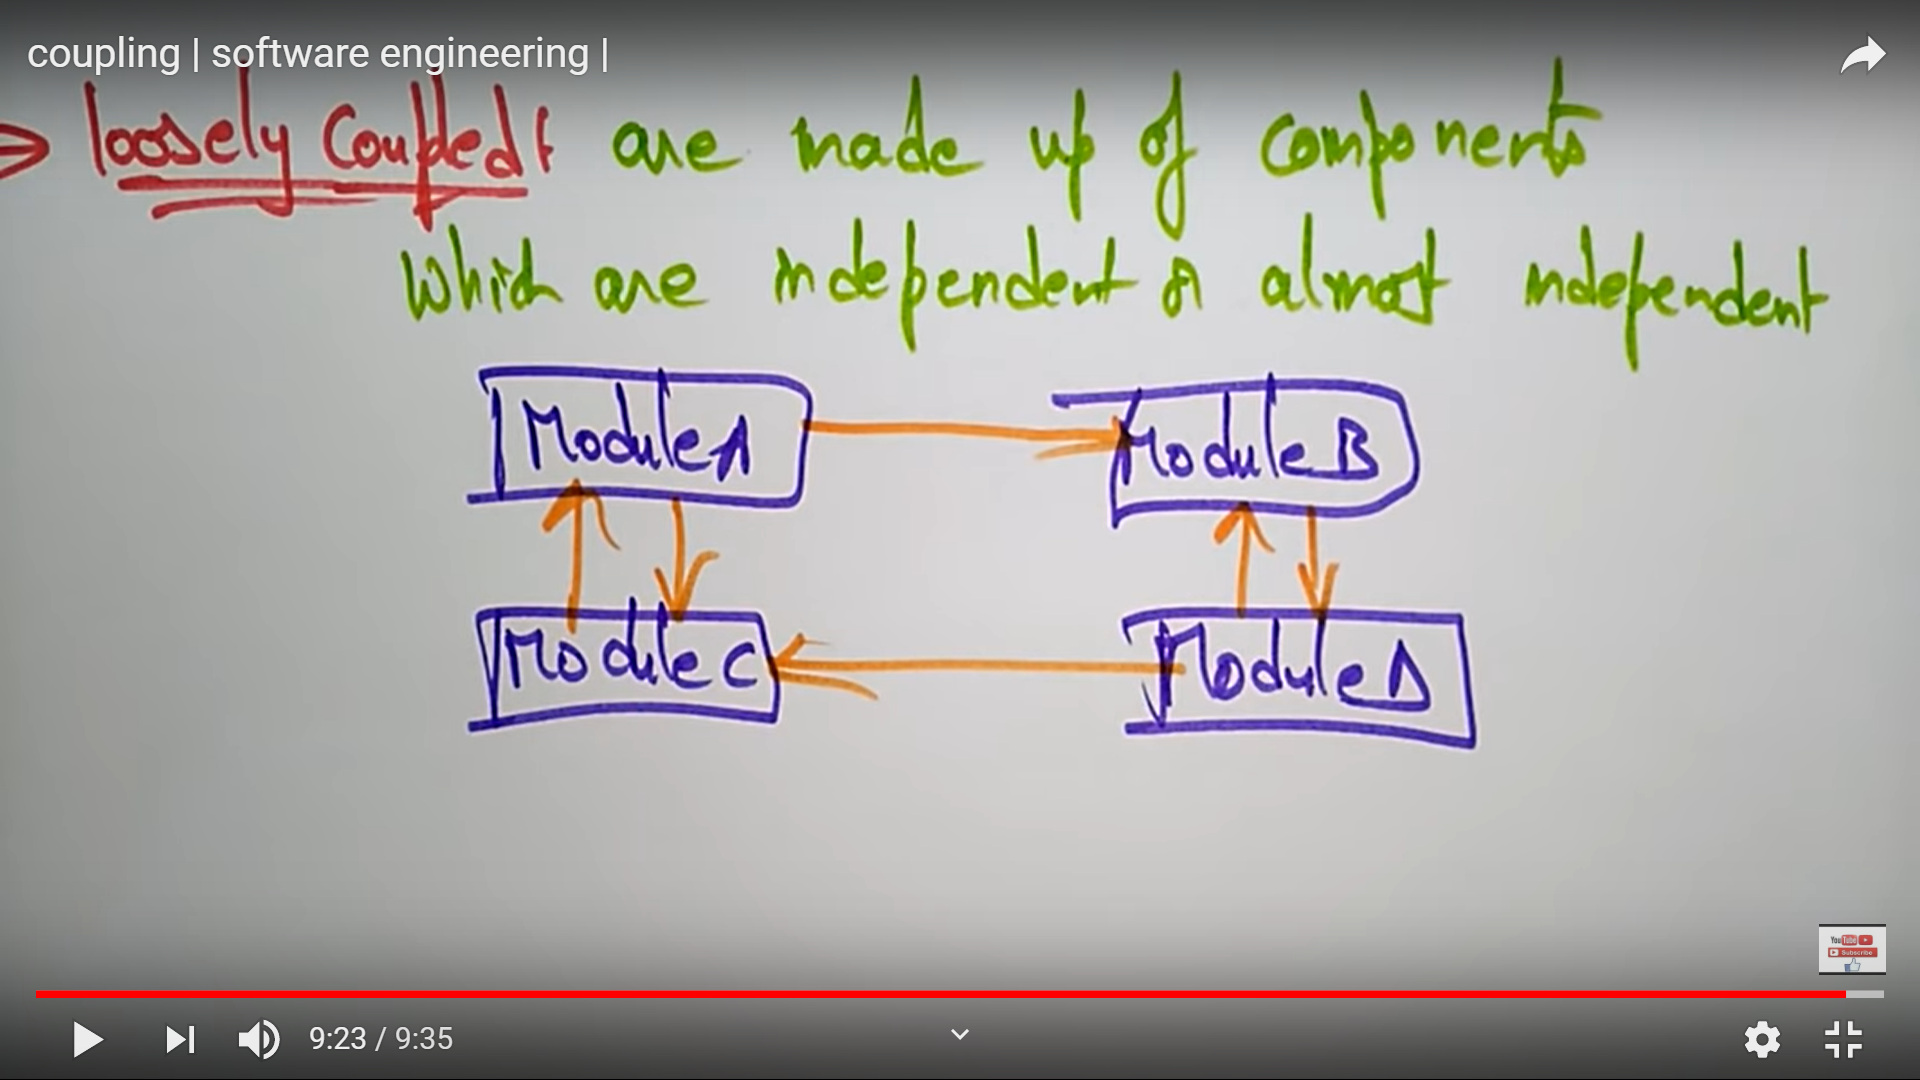 coupling | software engineering |
⇒ loosely Coupled: are made up of components
Which are independent or almost independent
Module A
Module B
Module C
Module D
You Tube
Subscribe
9:23 / 9:35